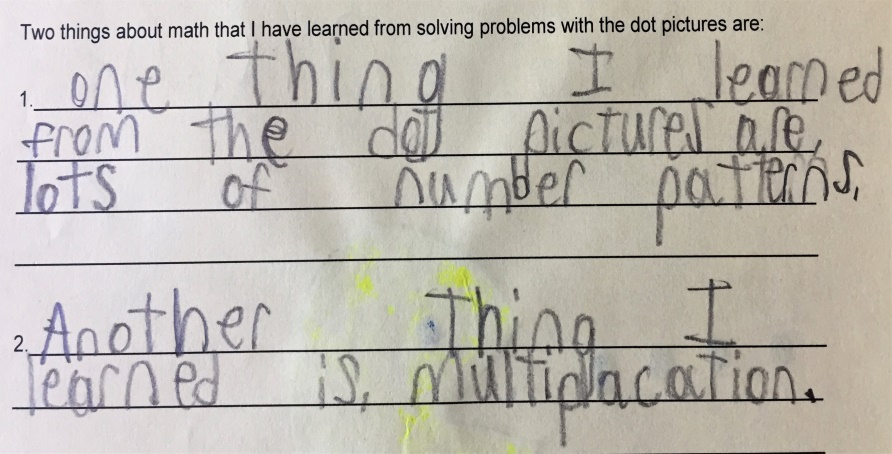 Two things about math that I have learned from solving problems with the dot pictures are:
1. one thing I learned
from the dot pictures are,
lots of number patterns.
2. Another thing I
learned is, multiplacation.